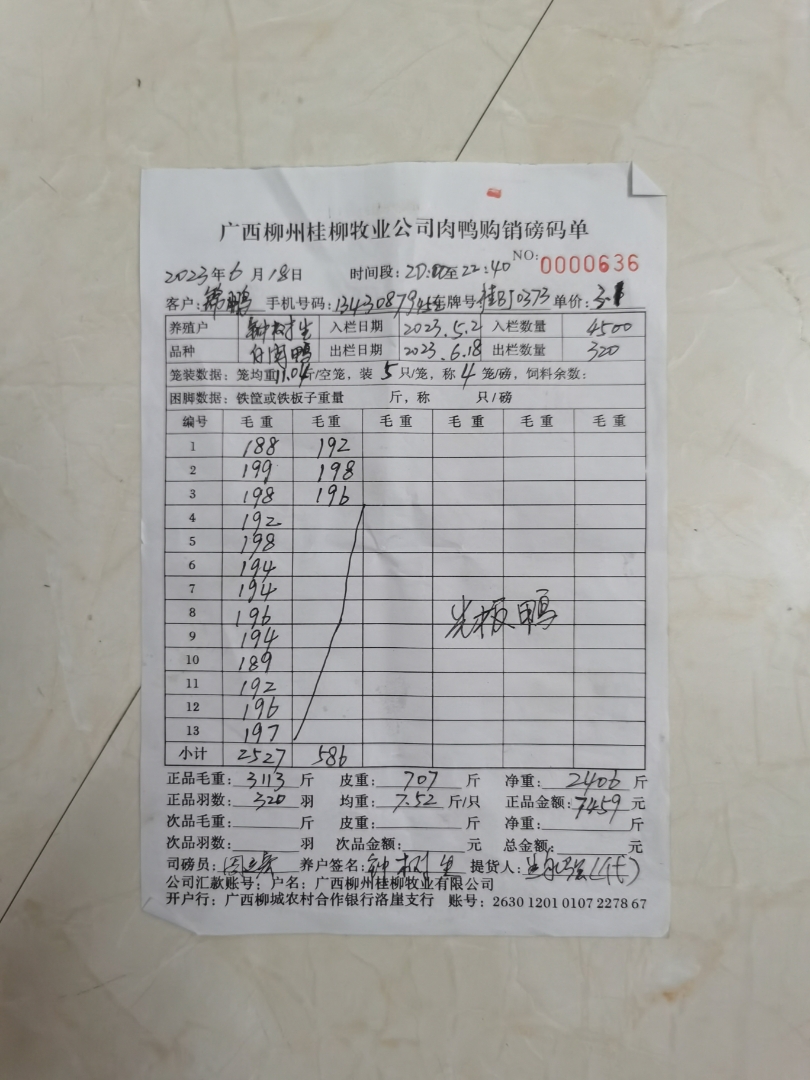 广西柳州桂柳牧业公司肉鸭购销磅码单
NO: 0000636
2023年6月18日 时间段:20:00至22:40
客户: 鹏 手机号码: 车牌号:桂BJ0373 单价:3.1
养殖户 钟树生 入栏日期 2023.5.2 入栏数量 4500
品种 白 鸭 出栏日期 2023.6.18 出栏数量 320
笼装数据:笼均重11.04斤/空笼,装5只/笼,称4笼/磅,饲料余数:
困脚数据:铁筐或铁板子重量 斤,称 只/磅
编号 毛重 毛重 毛重 毛重 毛重 毛重
1 188 192
2 199 198
3 198 196
4 192
5 198
6 194
7 194
8 196
9 194
10 189
11 192
12 196
13 197
光板鸭
小计 2527 586
正品毛重:3113斤 皮重:707斤 净重:2406斤
正品羽数:320羽 均重:7.52斤/只 正品金额:7459元
次品毛重: 斤 皮重: 斤 净重: 斤
次品羽数: 羽 次品金额: 元 总金额: 元
司磅员: 养户签名:钟树生 提货人: (代)
公司汇款账号:户名:广西柳州桂柳牧业有限公司
开户行:广西柳城农村合作银行洛崖支行 账号:2630 1201 0107 2278 67